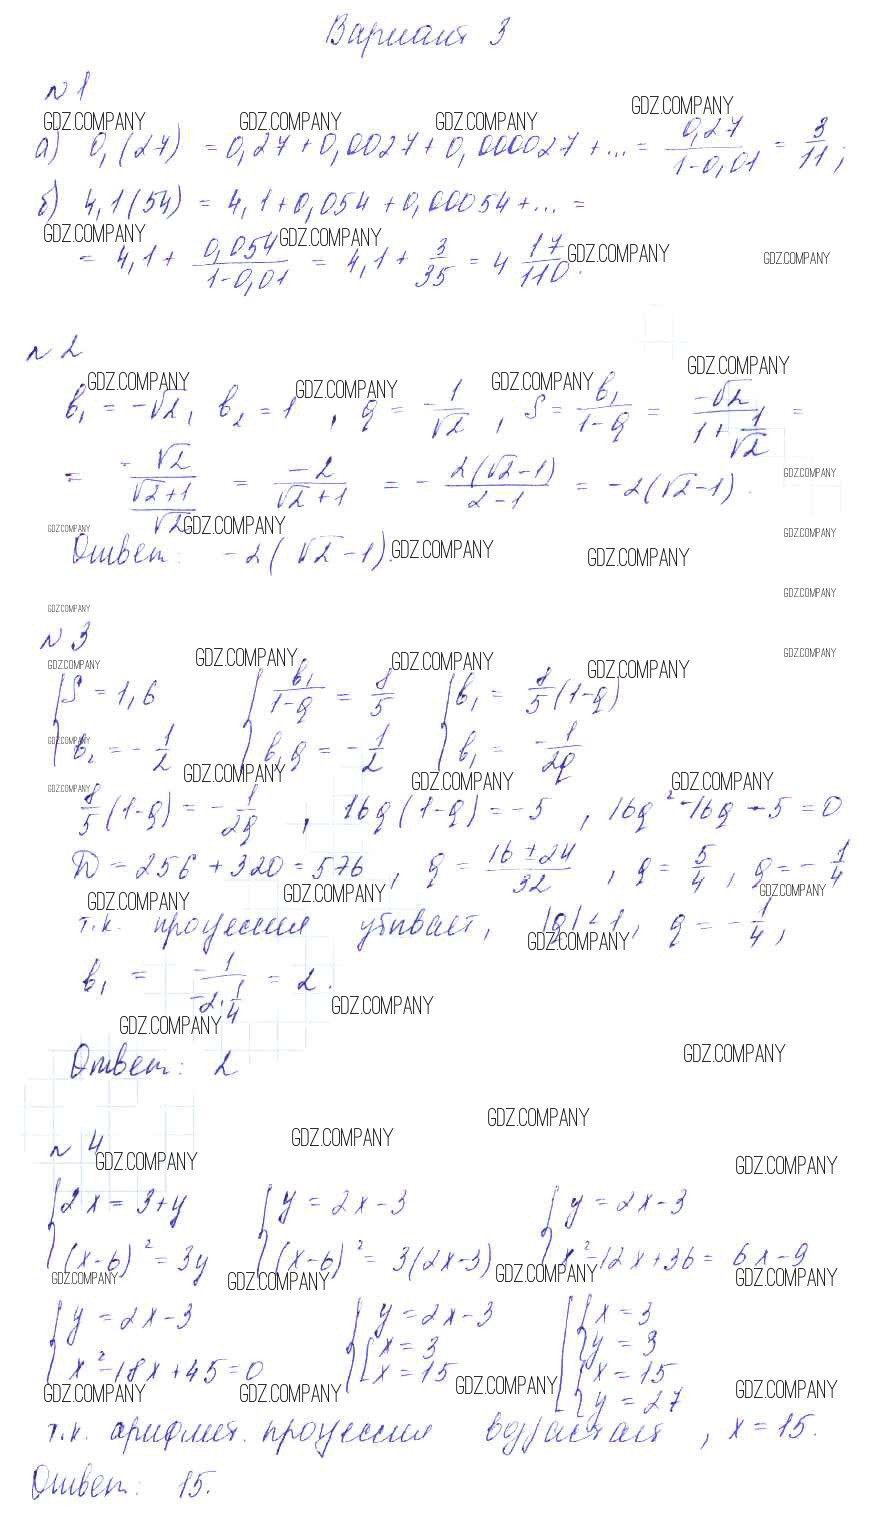 Вариант 3
№ 1
GDZ.COMPANY GDZ.COMPANY GDZ.COMPANY GDZ.COMPANY
а) 0,(27) = 0,27 + 0,0027 + 0,000027 + ... = 0,27/(1-0,01) = 3/11;
б) 4,1(54) = 4,1 + 0,054 + 0,00054 + ... =
GDZ.COMPANY GDZ.COMPANY GDZ.COMPANY GDZ.COMPANY
= 4,1 + 0,054/(1-0,01) = 4,1 + 3/35 = 4 17/110.
№ 2
GDZ.COMPANY GDZ.COMPANY GDZ.COMPANY GDZ.COMPANY
b₁ = -√2, b₂ = 1, q = -1/√2, S = b₁/(1-q) = -√2/(1+1/√2) =
= -√2/((√2+1)/√2) = -2/(√2+1) = -2(√2-1)/(2-1) = -2(√2-1).
GDZ.COMPANY
GDZ.COMPANY GDZ.COMPANY GDZ.COMPANY
Ответ: -2(√2-1).
GDZ.COMPANY GDZ.COMPANY
GDZ.COMPANY
GDZ.COMPANY
№ 3
GDZ.COMPANY GDZ.COMPANY GDZ.COMPANY GDZ.COMPANY GDZ.COMPANY
{S = 1,6 {b₁/(1-q) = 8/5 {b₁ = 8/5(1-q)
b₂ = -1/2 b₁q = -1/2 b₁ = -1/2q
GDZ.COMPANY
GDZ.COMPANY GDZ.COMPANY GDZ.COMPANY GDZ.COMPANY
8/5(1-q) = -1/2q, 16q(1-q) = -5, 16q²-16q-5=0
D = 256 + 320 = 576, q = (16±24)/32, q = 5/4, q = -1/4
GDZ.COMPANY GDZ.COMPANY GDZ.COMPANY
т.к. прогрессия убывает, |q|<1, q = -1/4,
GDZ.COMPANY
b₁ = -1/(-2·1/4) = 2.
GDZ.COMPANY GDZ.COMPANY
Ответ: 2
GDZ.COMPANY
GDZ.COMPANY
GDZ.COMPANY
№ 4
GDZ.COMPANY GDZ.COMPANY
{2x = 3+y {y = 2x-3 {y = 2x-3
(x-6)² = 3y (x-6)² = 3(2x-3) x²-12x+36 = 6x-9
GDZ.COMPANY GDZ.COMPANY GDZ.COMPANY GDZ.COMPANY
{y = 2x-3 {y = 2x-3 [{x = 3
x=3 y = 3
x²-18x+45=0 x=15 {x = 15
y = 27
GDZ.COMPANY GDZ.COMPANY GDZ.COMPANY GDZ.COMPANY
т.к. арифмет. прогрессия возрастает, x = 15.
Ответ: 15.